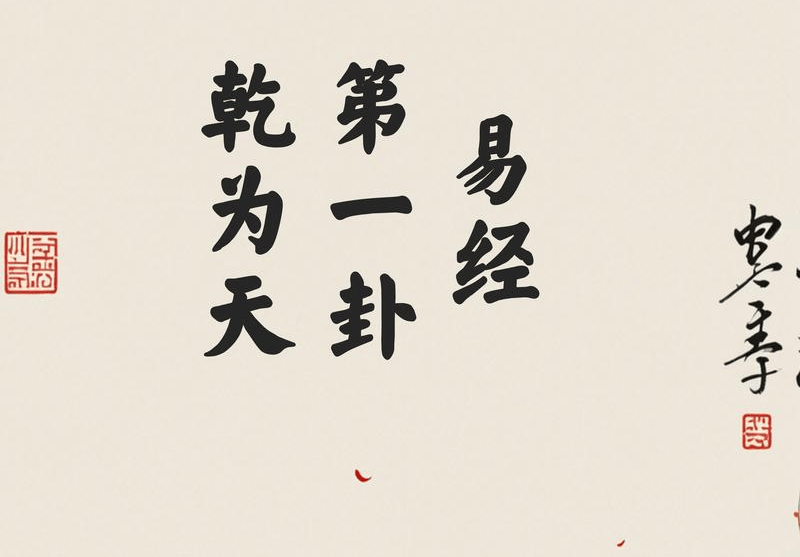 易经
第一卦
乾为天